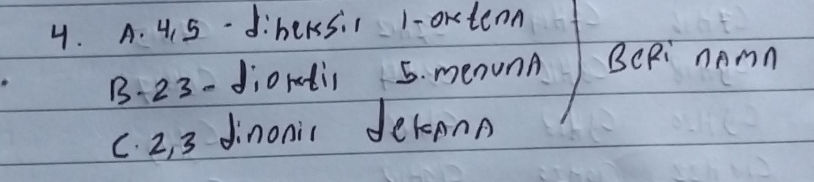 4. A. 4,5 - diheksil 1-oktena
B. 23 - dioktil 5. menuna BERi NAMA
C. 2,3 dinonil dekana